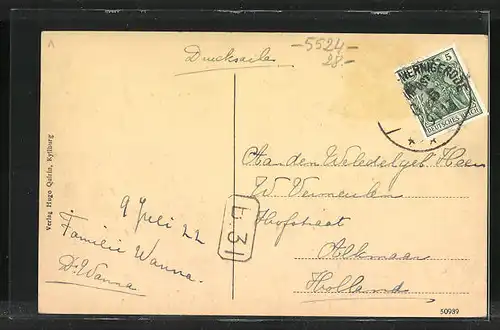 Drucksache
-5524-
28.-
5
WERNIGERODE
DEUTSCHES REICH
Aan den Weledelgeb Heer
W Vermeulen
Hofstraat
Alkmaar
Holland
9 Juli 22
Familie Wanna.
Dr. Wanna
t. 31
Verlag Hugo Quirin, Kyllburg
50989